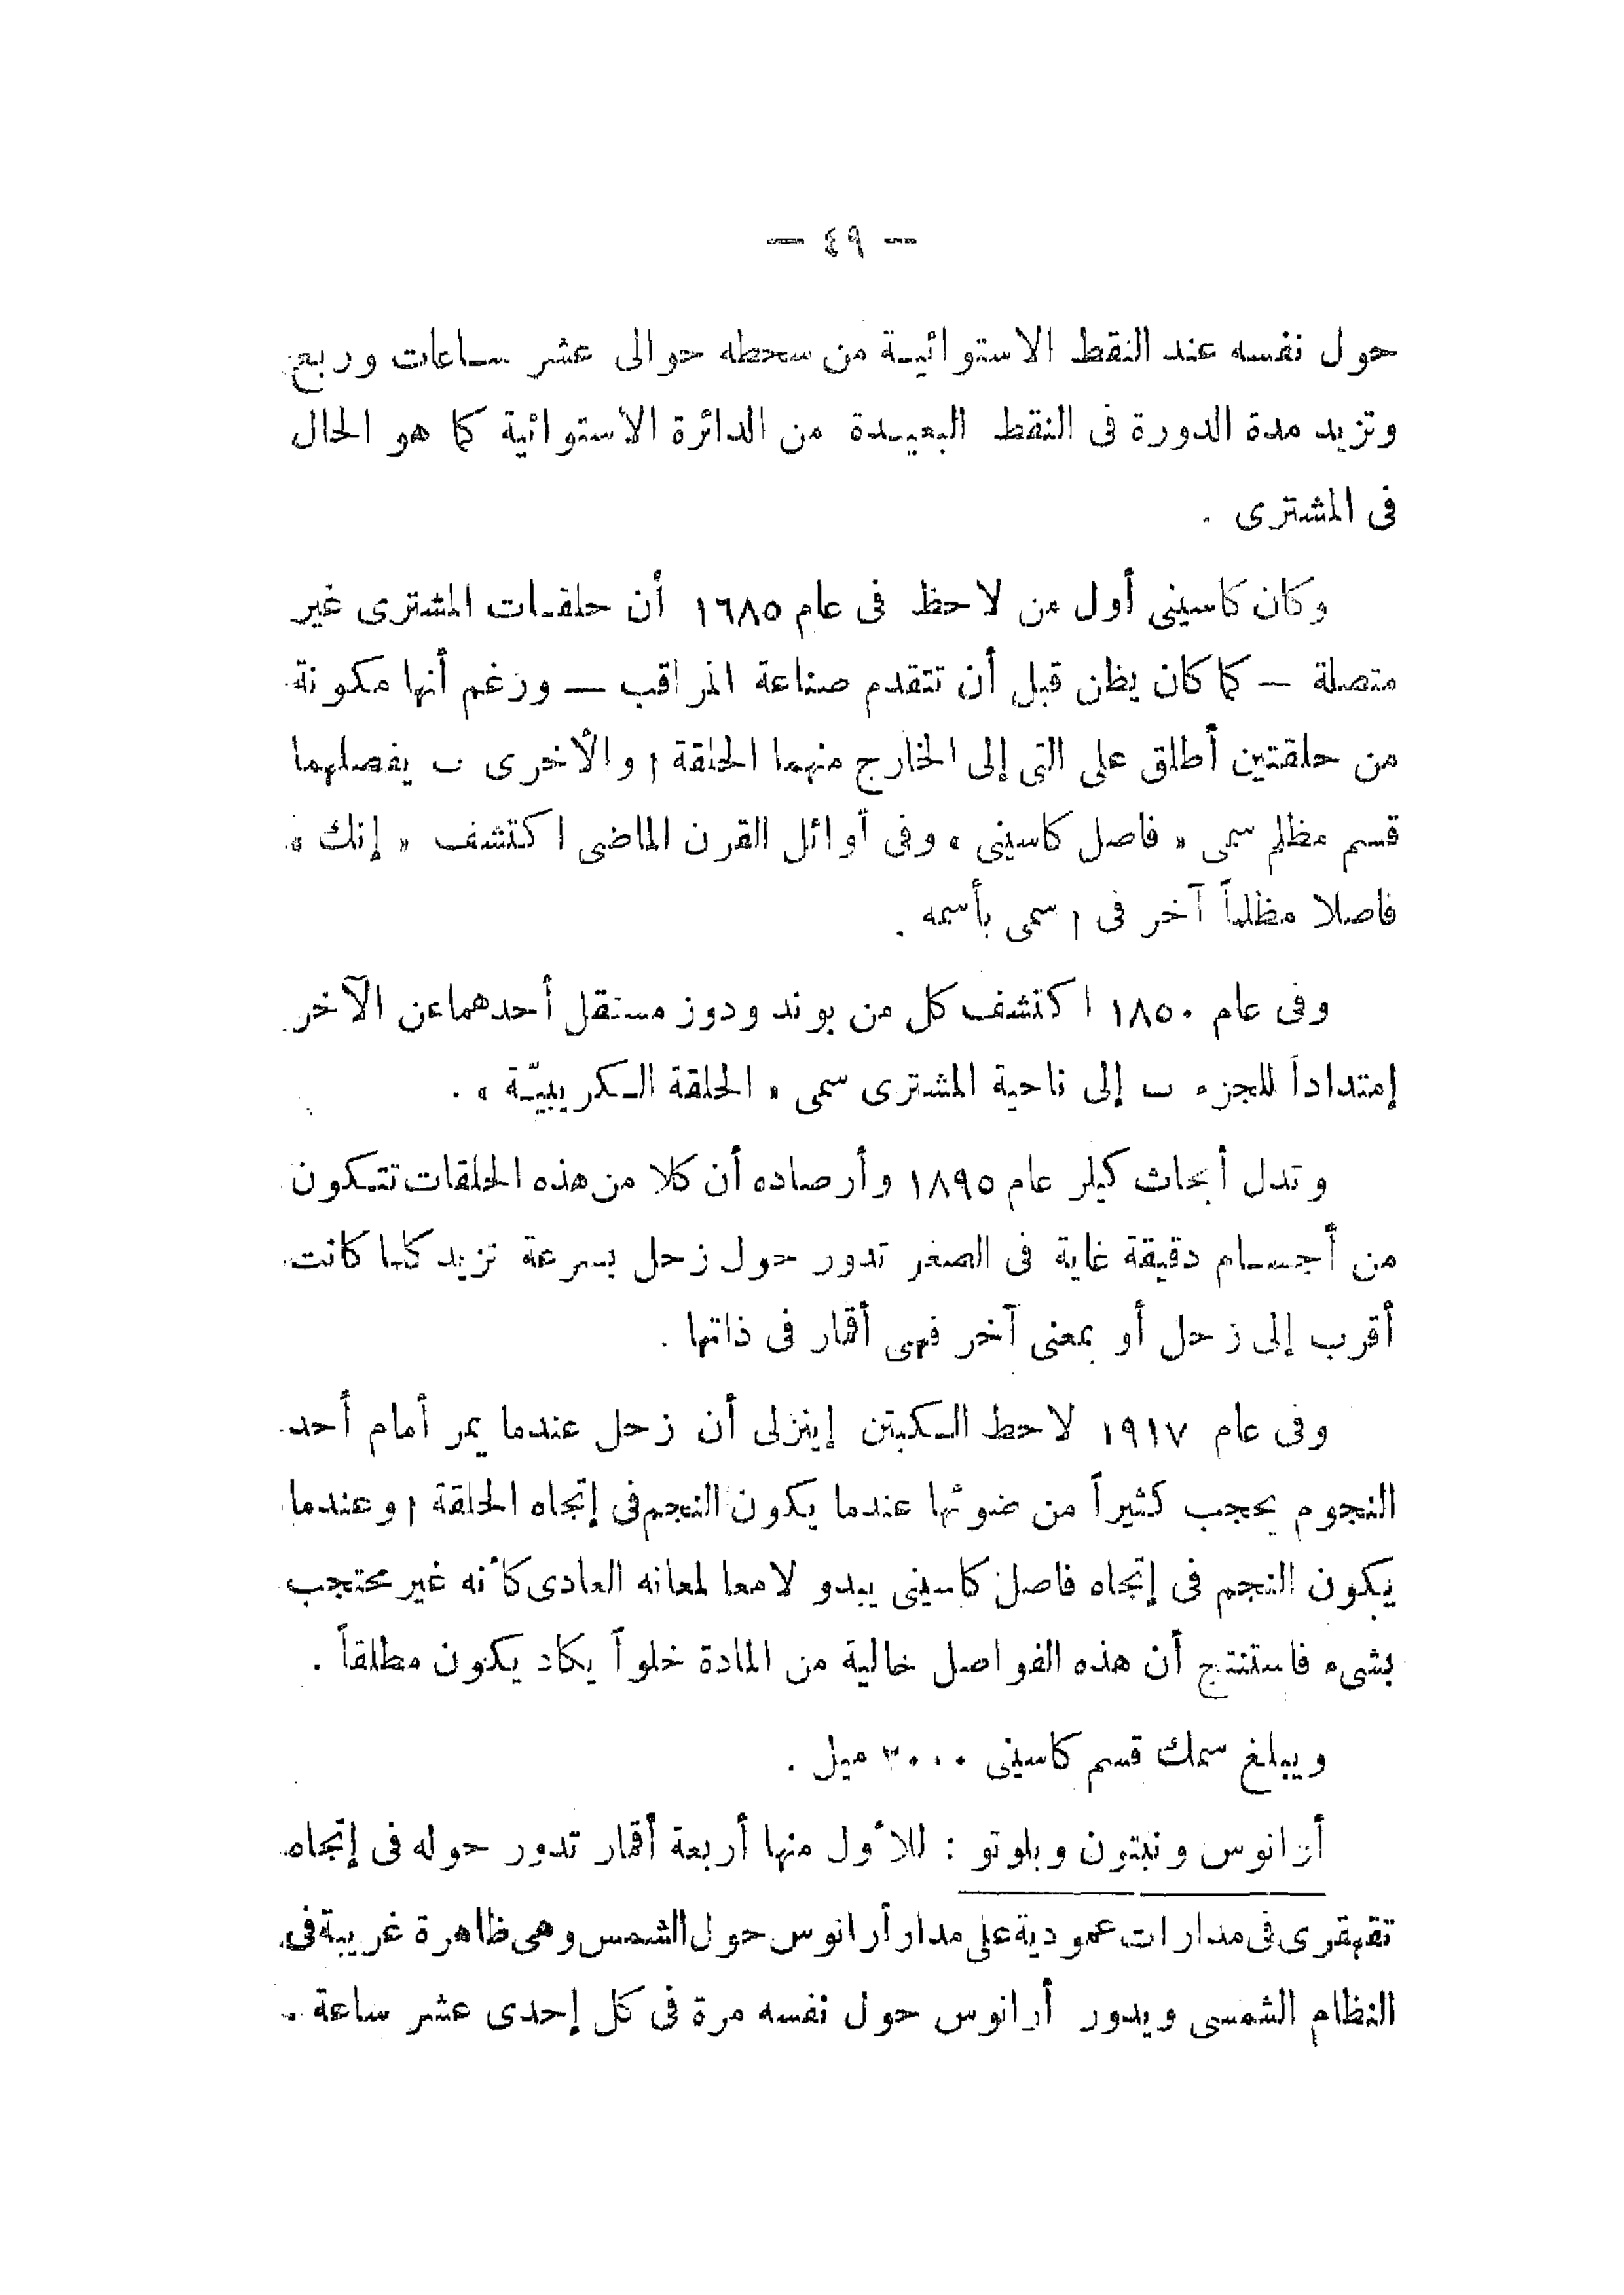 — ٤٩ —
حول نفسه عند النقط الاستوائية من سحطه حوالى عشر ساعات وربع
وتزيد مدة الدورة فى النقط البعيدة من الدائرة الاستوائية كما هو الحال
فى المشترى .
وكان كاسينى أول من لاحظ فى عام ١٦٨٥ أن حلقات المشترى غير
متصلة — كما كان يظن قبل أن تتقدم صناعة المراقب — وزعم أنها مكونة
من حلقتين أطلق على التى إلى الخارج منهما الحلقة ا والأخرى ب يفصلهما
قسم مظلم سمى « فاصل كاسينى » وفى أوائل القرن الماضى اكتشف « إنك »
فاصلا مظلماً آخر فى ا سمى بأسمه .
وفى عام ١٨٥٠ اكتشف كل من بوند ودوز مستقل أحدهما عن الآخر
إمتداداً للجزء ب إلى ناحية المشترى سمى « الحلقة الكريبيّة » .
وتدل أبحاث كيلر عام ١٨٩٥ وأرصاده أن كلا من هذه الحلقات تتكون
من أجسام دقيقة غاية فى الصغر تدور حول زحل بسرعة تزيد كلما كانت
أقرب إلى زحل أو بمعنى آخر فهى أقمار فى ذاتها .
وفى عام ١٩١٧ لاحظ الكبتن إينزلى أن زحل عندما يمر أمام أحد
النجوم يحجب كثيراً من ضوئها عندما يكون النجم فى إتجاه الحلقة ا وعندما
يكون النجم فى إتجاه فاصل كاسينى يبدو لامعا لمعانه العادى كأنه غير محتجب
بشىء فاستنتج أن هذه الفواصل خالية من المادة خلواً يكاد يكون مطلقاً .
ويبلغ سمك قسم كاسينى ٣٠٠٠ ميل .
أرانوس ونبتون وبلوتو : للأول منها أربعة أقمار تدور حوله فى إتجاه
تقهقرى فى مدارات عمودية على مدار أرانوس حول الشمس وهى ظاهرة غريبة فى
النظام الشمسى ويدور أرانوس حول نفسه مرة فى كل إحدى عشر ساعة .